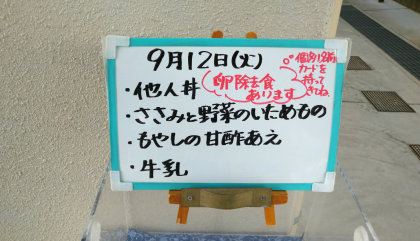 9月12日(火)
・他人丼
卵除去食
あります
個別(名前)
カードを
持って
きてね。
・ささみと野菜のいためもの
・もやしの甘酢あえ
・牛乳